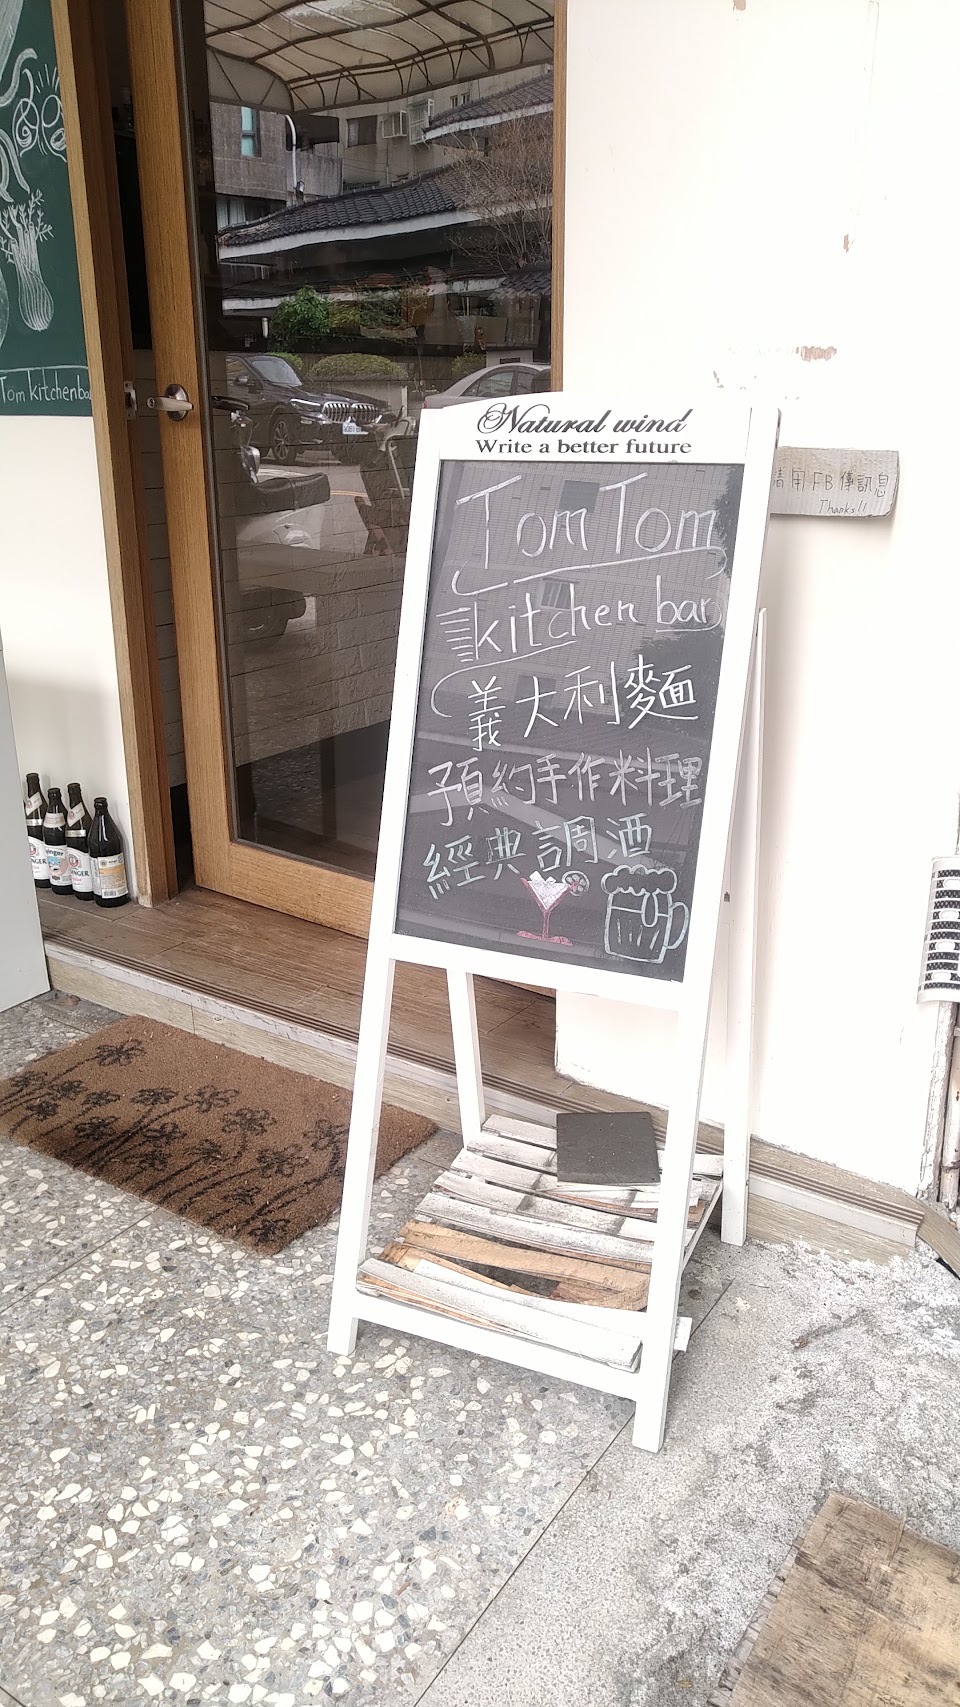 Tom kitchenba
Natural wind
Write a better future
TomTom
kitchen bar
義大利麵
預約手作料理
經典調酒
請用FB傳訊息
Thanks!!
INGER